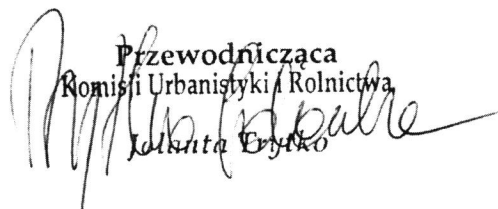 Przewodnicząca
Komisji Urbanistyki i Rolnictwa
Jolanta Trytko